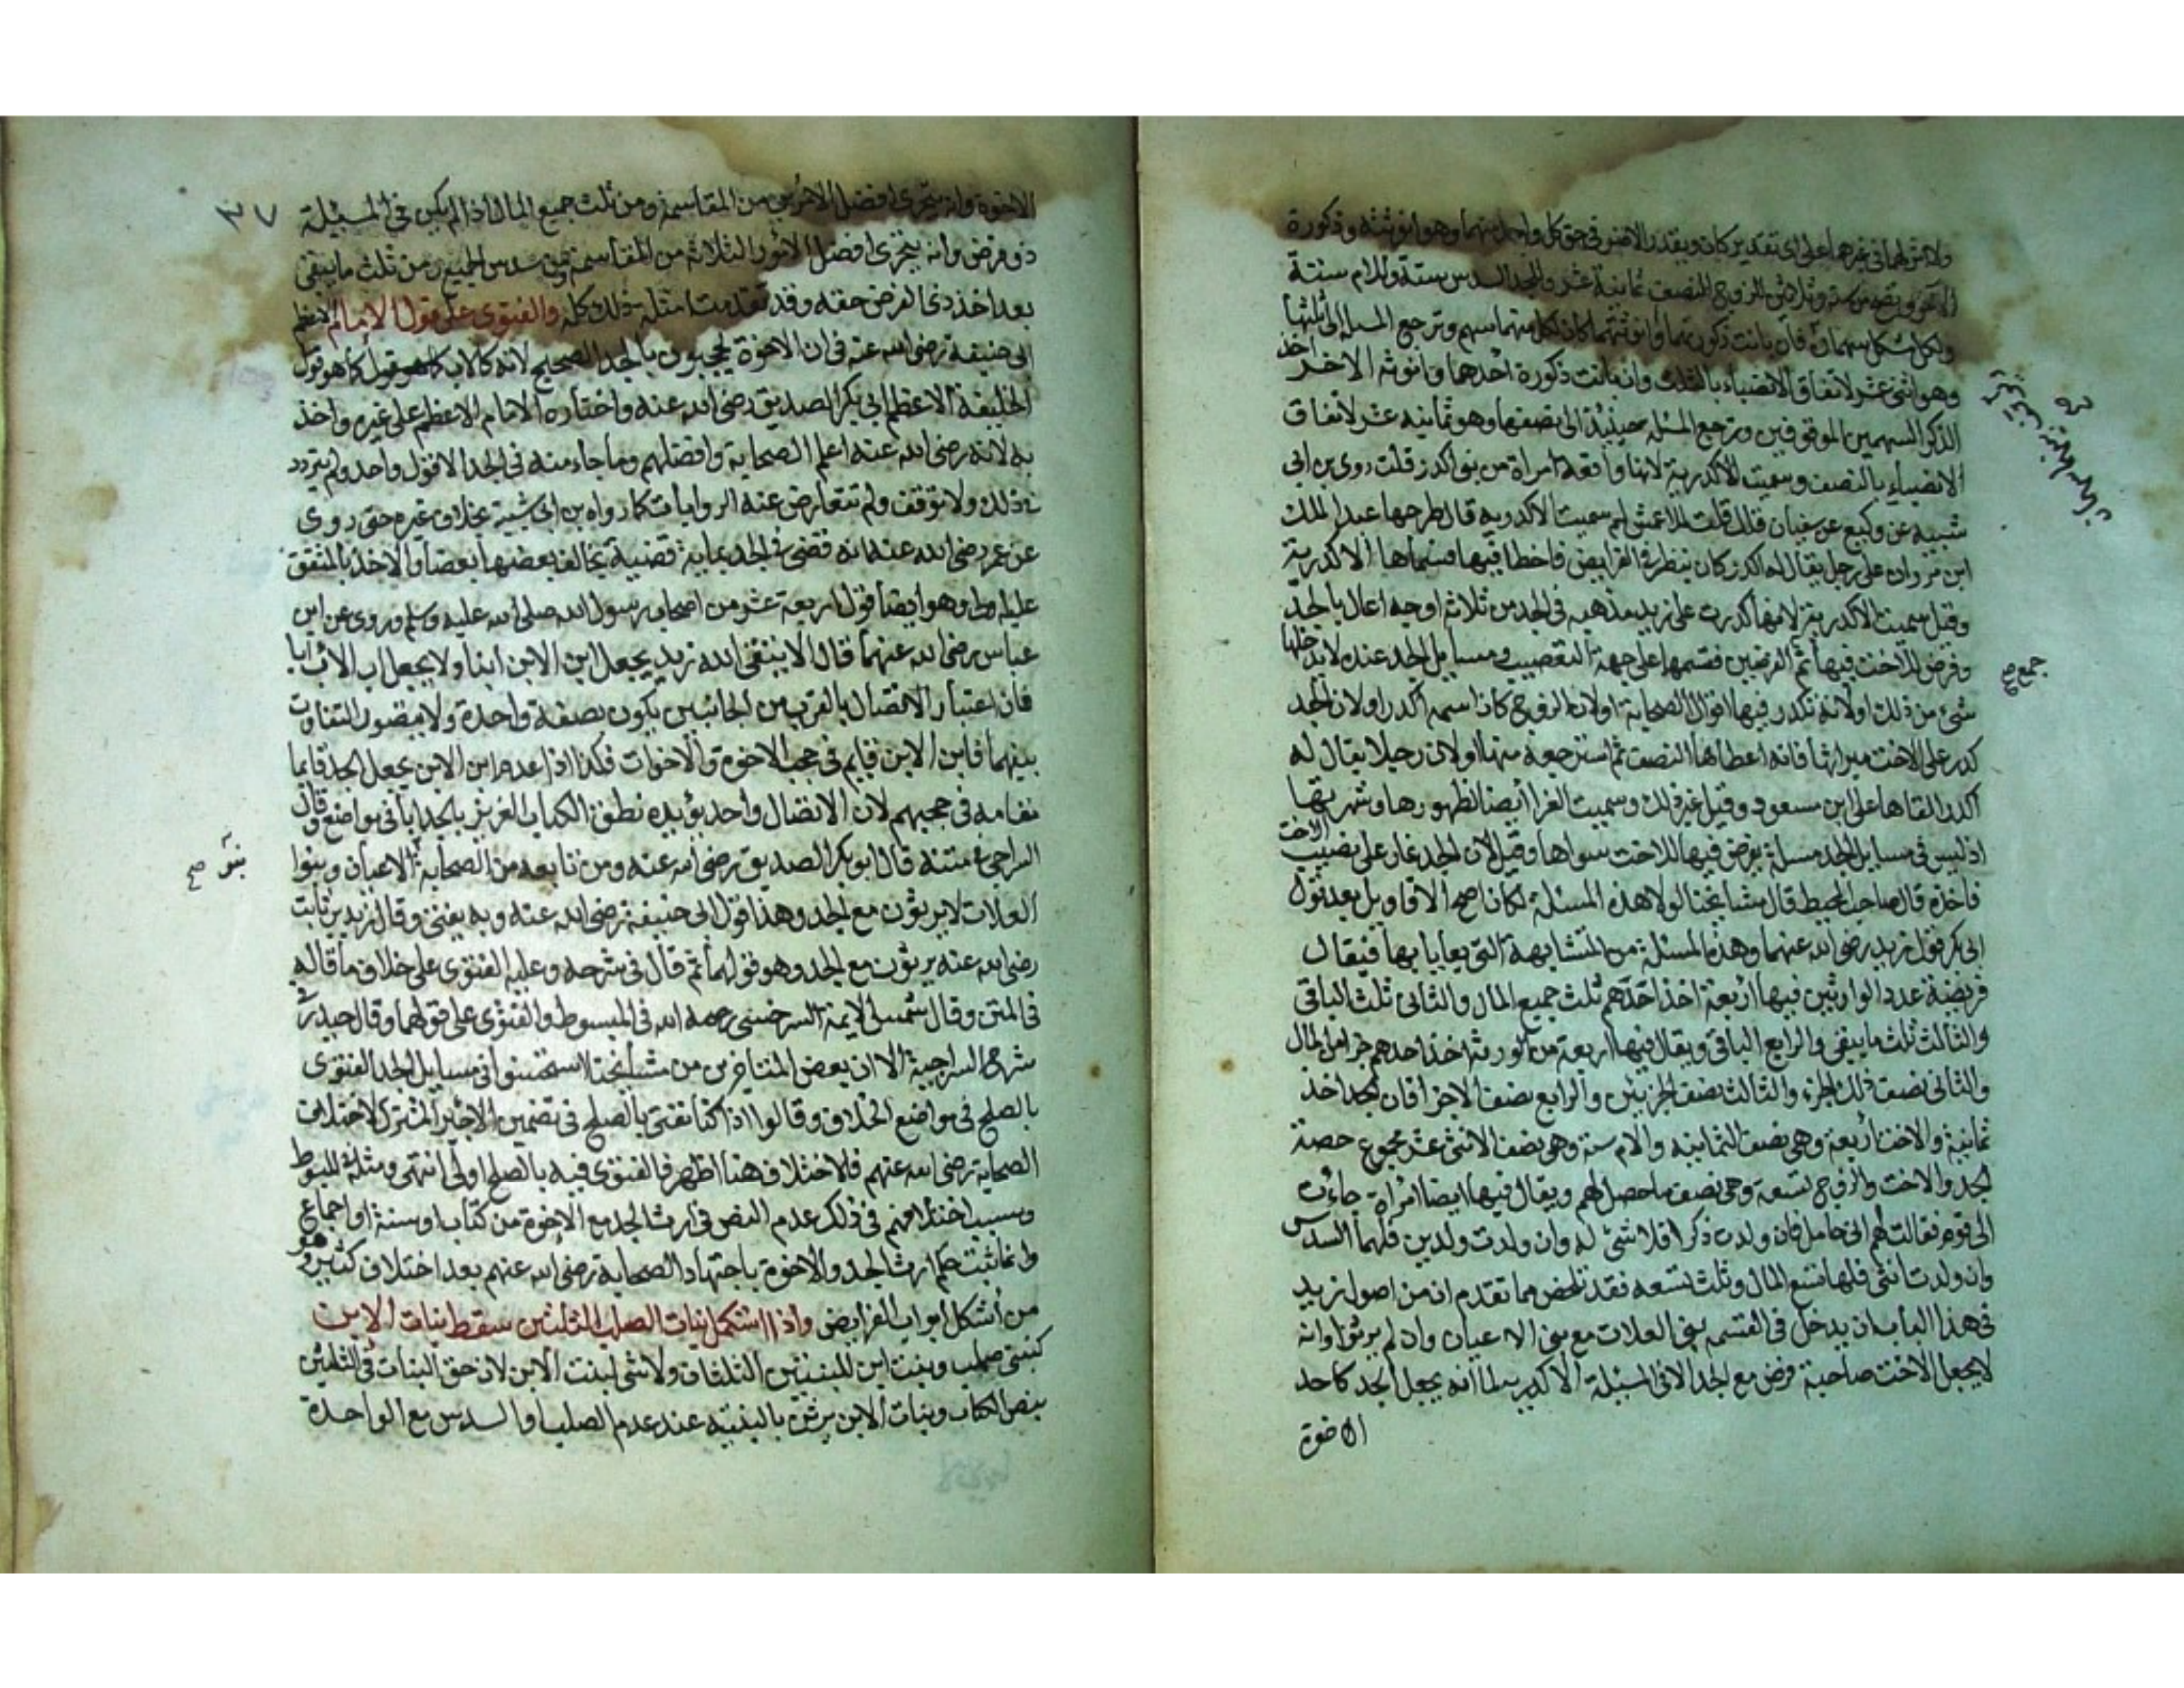 ولا شئ لهما في غيرها على اي تقدير كان ويقدر الاضر في حق كل واحد منهما وهو انوثته وذكورة
الآخر وتصح من ستة وثلاثين للزوج النصف ثمانية عشر وللجد السدس ستة وللام ستة
ولكل مشكل سهمان فان بانت ذكورتهما وانوثتهما كان لكل منهما سهم وترجع المسئلة الى ثلثها
وهو اثنى عشر لاتفاق الانصباء بالثلث وان بانت ذكورة احدهما وانوثة الاخر اخذ
الذكر السهمين الموقوفين وترجع المسئلة حينئذ الى نصفها وهو ثمانية عشر لاتفاق
الانصباء بالنصف وسميت الاكدرية لانها واقعة امراة من بنى اكدر قلت روى بن ابى
شيبه عن وكيع عن سفيان قال قلت للاعمش لم سميت الاكدريه قال طرحها عبد الملك
ابن مروان على رجل يقال له اكدر كان ينظر في الفرايض فاخطا فيها فسماها الاكدرية
وقيل سميت الاكدرية لانها كدرت على زيد مذهبه في الجد من ثلاثة اوجه اعال بالجد
وفرض للاخت فيها ثم الفرضين فقسمها على جهة التعصيب ومسايل الجد عنده لا يدخلها
شئ من ذلك او لانه تكدر فيها اقوال الصحابة او لان الزوج كان اسمه اكدر او لان الجد
كدر على الاخت ميراثها فانه اعطاها النصف ثم استرجعه منها او لان رجلا يقال له
اكدر القاها على ابن مسعود وقيل غير ذلك وسميت الغرا ايضا لظهورها وشهرتها
اذ ليس في مسايل الجد مسئلة يفرض فيها للاخت سواها وقيل لان الجد غار على نصيب الاخت
فاخذه قال صاحب المحيط قال مشايخنا لولا هذه المسئلة لكان اصح الاقاويل بعد قول
ابى بكر قول زيد رضى الله عنهما وهذه المسئلة من المتشابهة التى يعايا بها فيقال
فريضة عدد الوارثين فيها اربعة اخذ احدهم ثلث جميع المال والثانى ثلث الباقى
والثالث ثلث ما يبقى والرابع الباقى ويقال فيها اربعة من الورثة اخذ احدهم جزا من المال
والثانى نصف ذلك الجزء والثالث نصف الجزئين والرابع نصف الاجزا فان الجد اخذ
ثمانية والاخت اربعة وهى نصف الثمانيه والام ستة وهى نصف الاثنى عشر مجموع حصة
الجد والاخت والزوج تسعة وهى نصف ما حصل لهم ويقال فيها ايضا امراة جاءت
الى قوم فقالت لهم انى حامل فان ولدت ذكرا فلا شئ له وان ولدت ولدين فلهما السدس
وان ولدت انثى فلها تسع المال وثلث تسعه فقد تلخص مما تقدم ان من اصول زيد
في هذا الباب ان يدخل في القسمه بنى العلات مع بنى الاعيان وان لم يرثوا وانه
لا يجعل الاخت صاحبة فرض مع الجد الا في المسئلة الاكدريه لما انه يجعل الجد كاحد
الاخوة
جمع صح
٣٧
الاخوة وانه يتحرى افضل الامرين من المقاسمة ومن ثلث جميع المال اذا لم يكن في المسئلة
ذو فرض وانه يتحرى افضل الامور الثلاثة من المقاسمة ومن سدس الجميع ومن ثلث ما يبقى
بعد اخذ ذى الفرض حقه وقد تقدمت امثلة ذلك كله والفتوى على قول الامام الاعظم
ابى حنيفة رضى الله عنه في ان الاخوة يحجبون بالجد الصحيح لانه كالاب كما هو قول
الخليفة الاعظم ابى بكر الصديق رضى الله عنه واختاره الامام الاعظم على غيره واخذ
به لانه رضى الله عنه اعلم الصحابة وافضلهم وما جاء منه في الجد الا قول واحد ولم يتردد
في ذلك ولا توقف ولم تتعارض عنه الروايات كما رواه بن ابى شيبة بخلاف غيره حتى روى
عن عمر رضى الله عنه انه قضى في الجد بماية قضية يخالف بعضها بعضا والاخذ بالمتفق
عليه اولى وهو ايضا قول اربعة عشر من اصحاب رسول الله صلى الله عليه وسلم وروى عن ابن
عباس رضى الله عنهما قال الا يتقى الله زيد يجعل ابن الابن ابنا ولا يجعل اب الاب ابا
فان اعتبار الاتصال بالقرب من الجانبين يكون بصفة واحدة ولا يتصور التفاوت
بينهما فابن الابن قايم في حجب الاخوة والاخوات فكذا اذا عدم ابن الابن يجعل الجد قايما
مقامه في حجبهم لان الاتصال واحد يؤيده نطق الكتاب العزيز بالجد ابا في مواضع وقال
السراجى في متنه قال ابو بكر الصديق رضى الله عنه ومن تابعه من الصحابة الاعيان وبنوا
العلات لا يرثون مع الجد وهذا قول ابى حنيفة رضى الله عنه وبه يفتى وقال زيد بن ثابت
رضى الله عنه يرثون مع الجد وهو قولهما ثم قال في شرحه وعليه الفتوى على خلاف ما قاله
في المتن وقال شمس الايمة السرخسى رحمه الله في المبسوط والفتوى على قولهما وقال حيدر في
شرح السراجية الا ان بعض المتاخرين من مشايخنا استحسنوا في مسايل الجد الفتوى
بالصلح في مواضع الخلاف وقالوا اذا كنا نفتى بالصلح في تضمين الاجير المشترك لاختلاف
الصحابة رضى الله عنهم فالاختلاف هنا اظهر فالفتوى فيه بالصلح اولى انتهى ومثله في المبسوط
وسبب اختلافهم في ذلك عدم النص في ارث الجد مع الاخوة من كتاب او سنة او اجماع
وانما ثبت حكم ارث الجد والاخوة باجتهاد الصحابة رضى الله عنهم بعد اختلاف كثير وهو
من اشكل ابواب الفرايض واذا استكمل بنات الصلب الثلثين سقط بنات الابن
كبنتى صلب وبنت ابن للبنتين الثلثان ولا شئ لبنت الابن لان حق البنات في الثلثين
بنص الكتاب وبنات الابن يرثن بالبنتيه عند عدم الصلب والسدس مع الواحدة
بنو صح